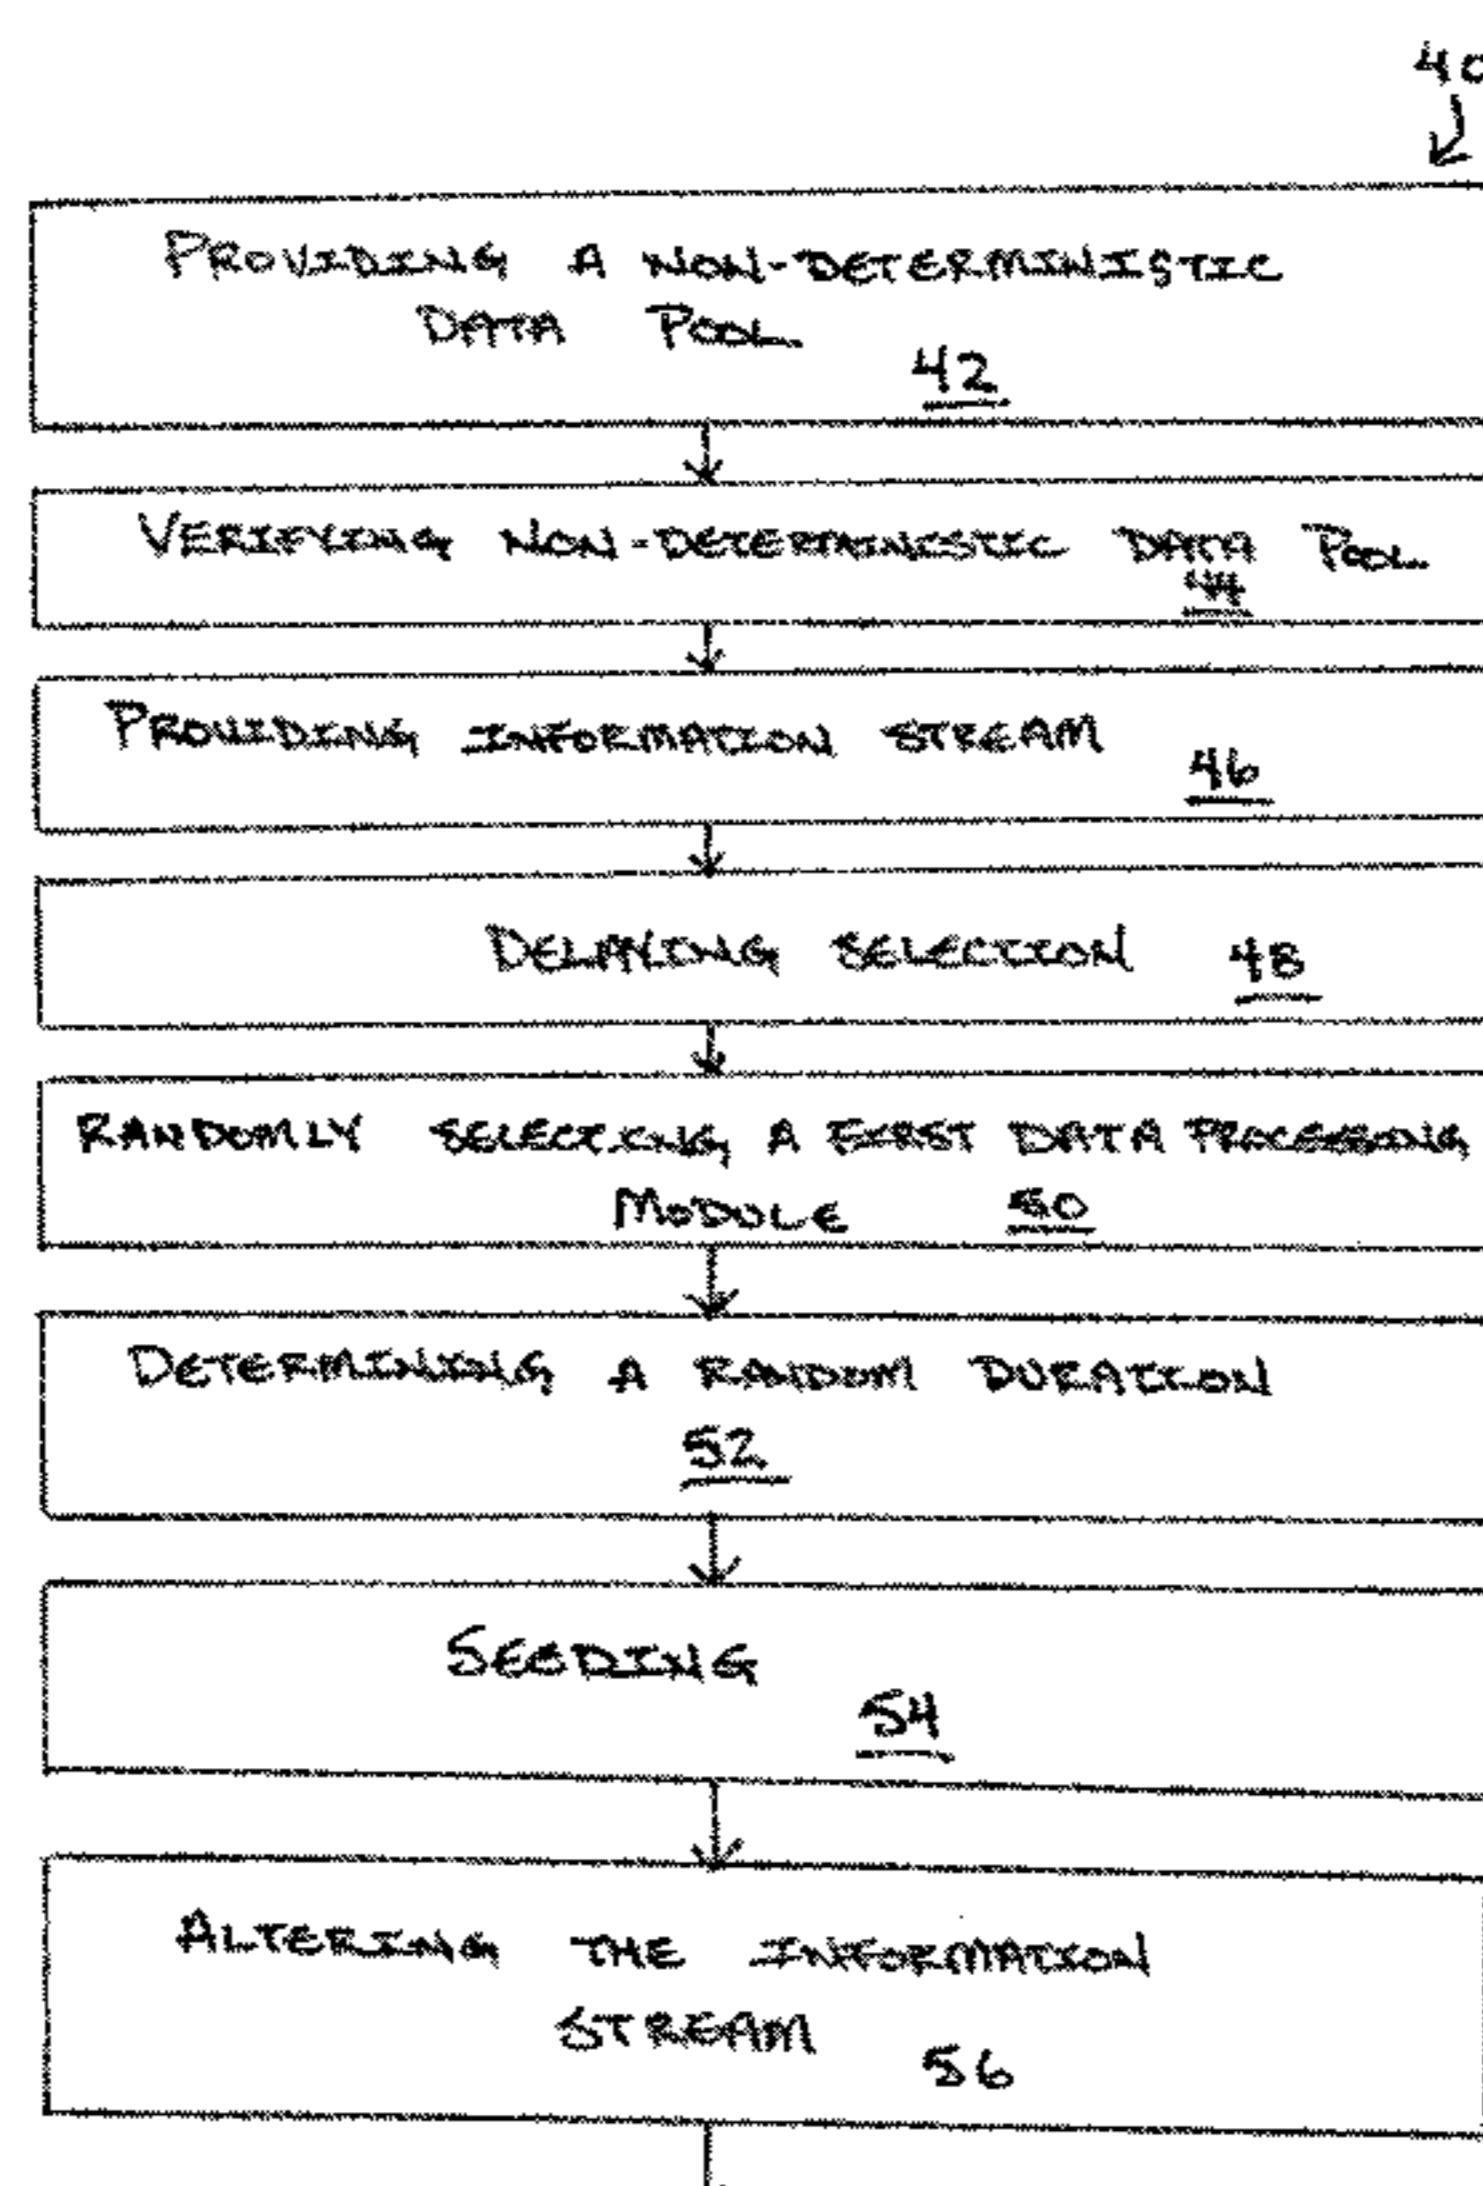 40
PROVIDING A NON-DETERMINISTIC
DATA POOL
42
VERIFYING NON-DETERMINISTIC DATA POOL
44
PROVIDING INFORMATION STREAM
46
DELAYING SELECTION 48
RANDOMLY SELECTING A FIRST DATA PROCESSING
MODULE 50
DETERMINING A RANDOM DURATION
52
SEEDING
54
ALTERING THE INFORMATION
STREAM 56